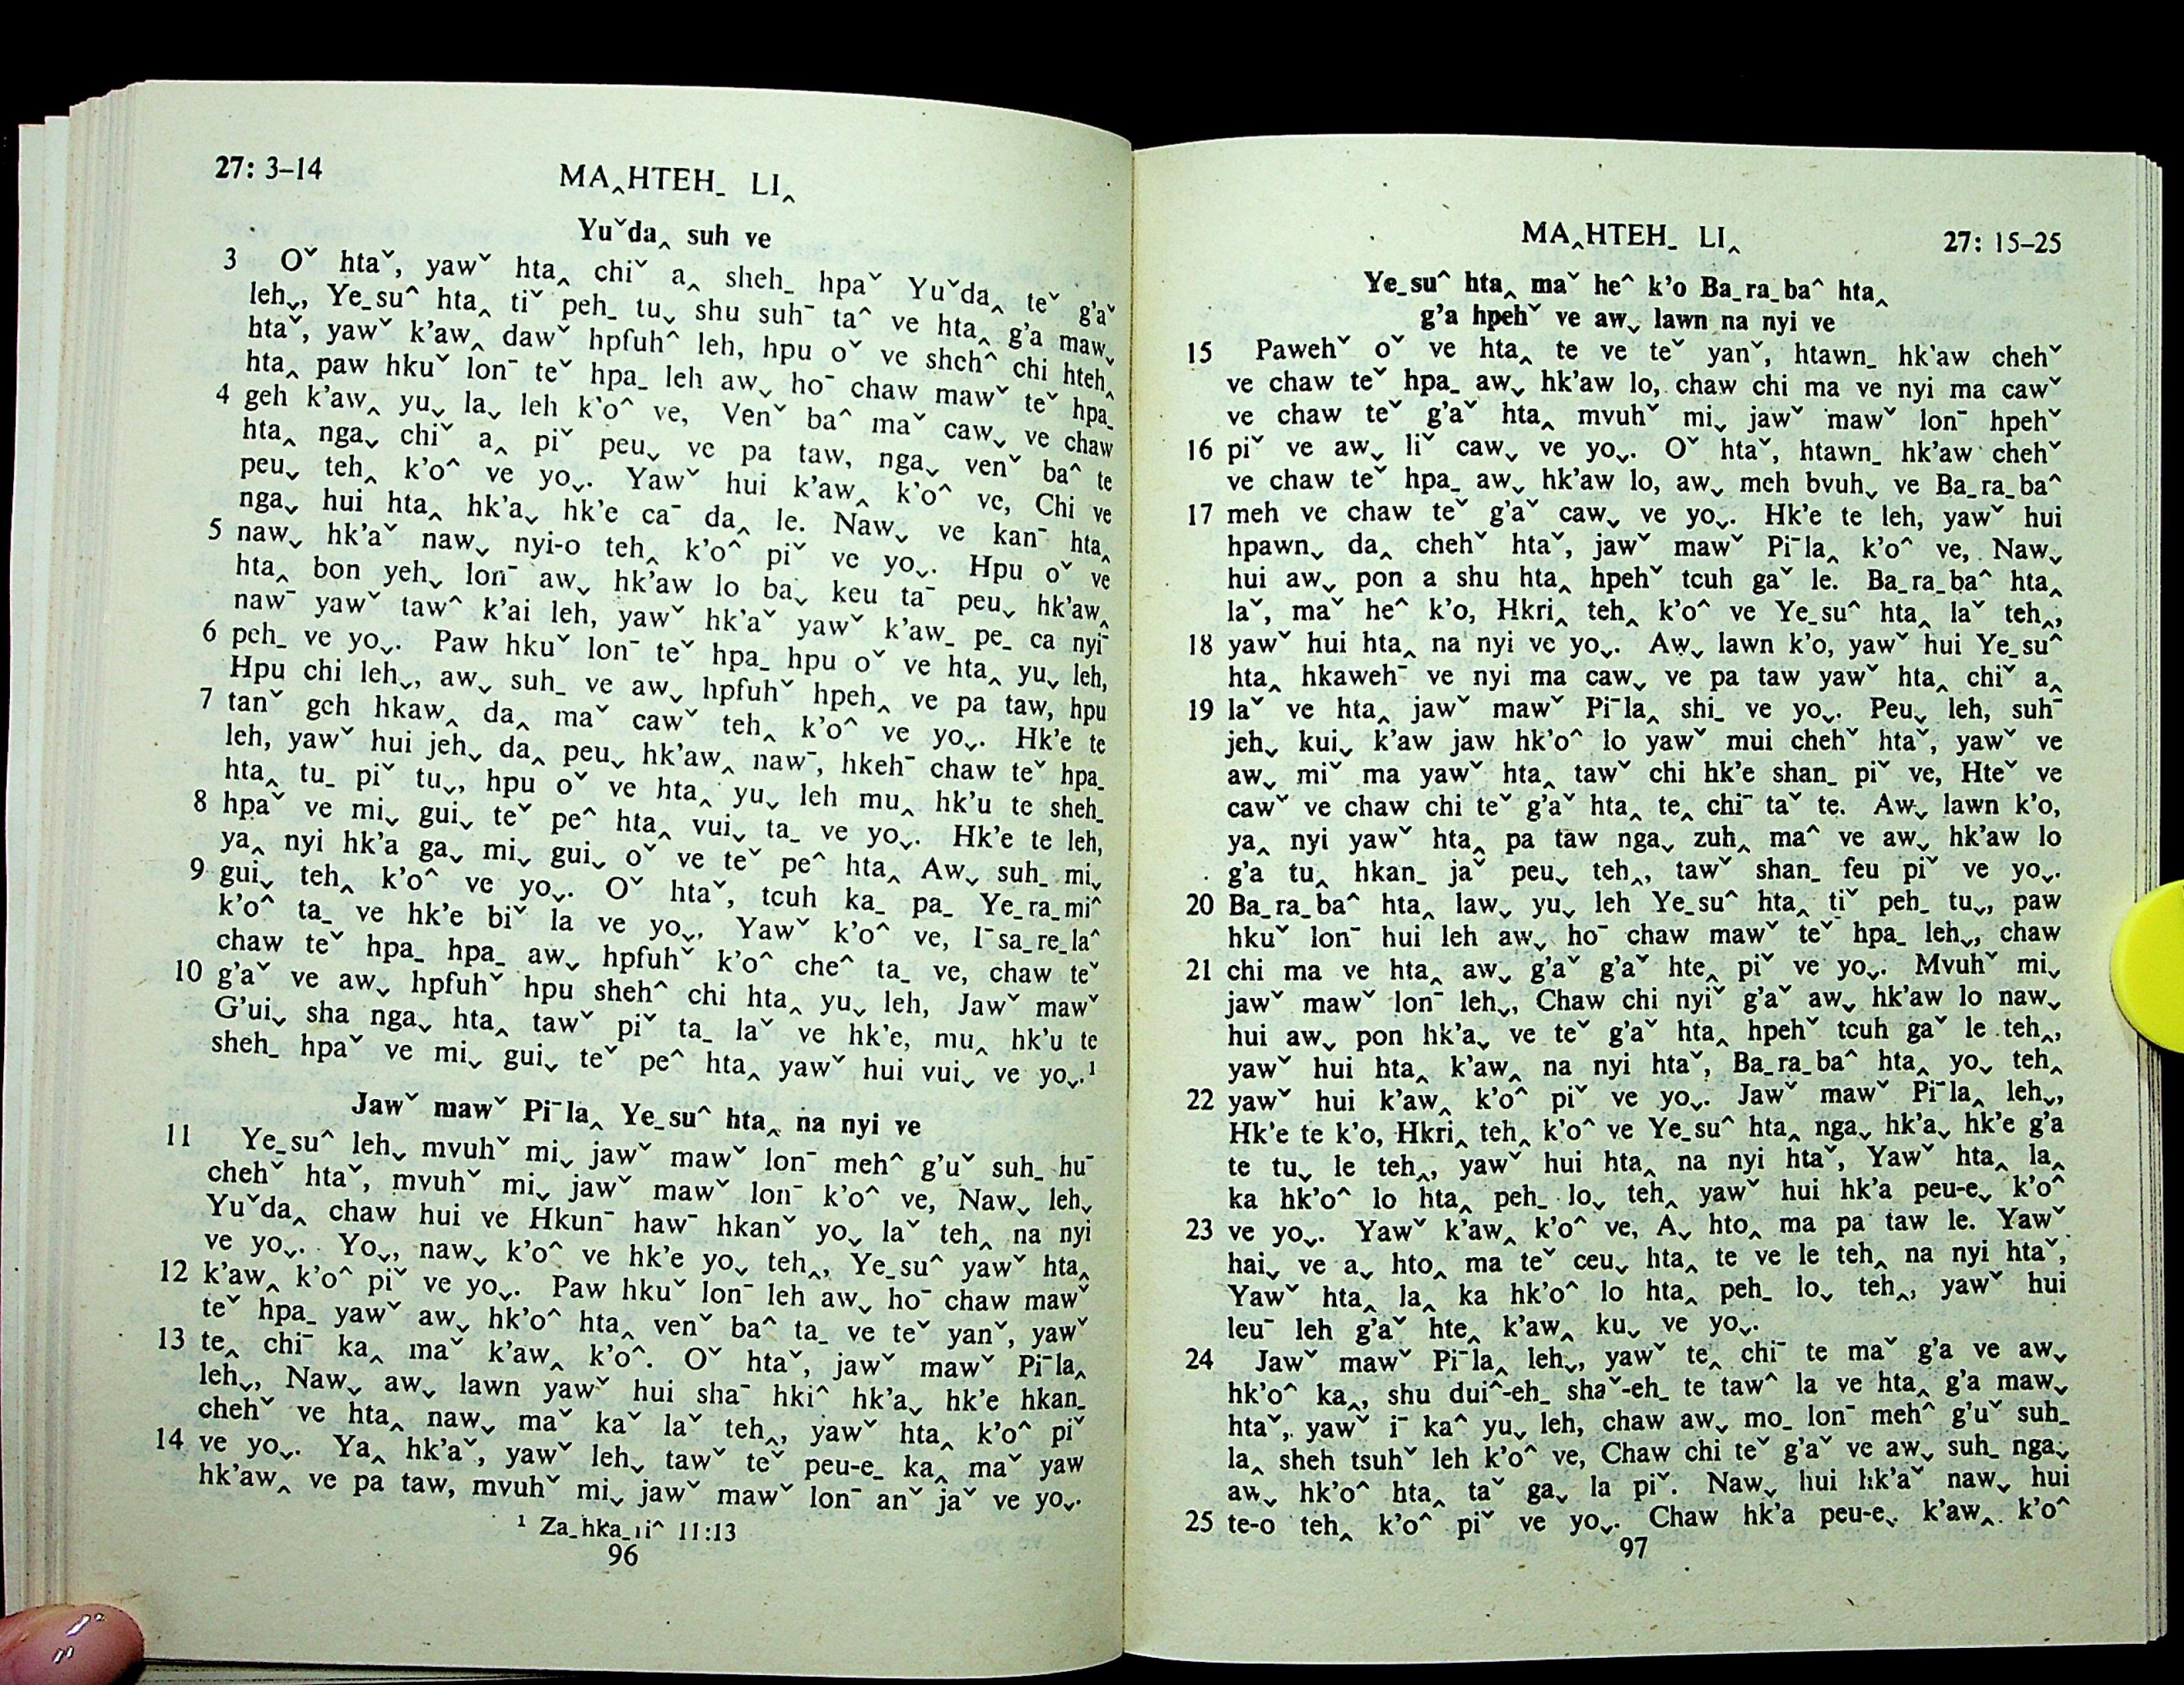 27: 3–14
MA‸HTEH₋ LI‸
Yuˇda‸ suh ve
3 Oˇ htaˇ, yawˇ hta‸ chiˇ a‸ sheh₋ hpaˇ Yuˇda‸ teˇ g'aˇ
lehˬ, Ye₋su^ hta‸ tiˇ peh₋ tuˬ shu suh¯ ta^ ve hta‸ g'a mawˬ
htaˇ, yawˇ k'aw‸ dawˇ hpfuh^ leh, hpu oˇ ve sheh^ chi hteh‸
hta‸ paw hkuˇ lon¯ teˇ hpa₋ leh awˬ ho¯ chaw mawˇ teˇ hpa₋
4 geh k'aw‸ yuˬ laˬ leh k'o^ ve, Venˇ ba^ maˇ cawˬ ve chaw
hta‸ ngaˬ chiˇ a‸ piˇ peuˬ ve pa taw, ngaˬ venˇ ba^ te
peuˬ teh‸ k'o^ ve yoˬ. Yawˇ hui k'aw‸ k'o^ ve, Chi ve
ngaˬ hui hta‸ hk'aˬ hk'e ca¯ da‸ le. Nawˬ ve kan¯ hta‸
5 nawˬ hk'aˇ nawˬ nyi-o teh‸ k'o^ piˇ ve yoˬ. Hpu oˇ ve
hta‸ bon yehˬ lon¯ awˬ hk'aw lo baˬ keu ta¯ peuˬ hk'aw‸
naw¯ yawˇ taw^ k'ai leh, yawˇ hk'aˇ yawˇ k'aw₋ pe₋ ca nyi¯
6 peh₋ ve yoˬ. Paw hkuˇ lon¯ teˇ hpa₋ hpu oˇ ve hta‸ yuˬ leh,
Hpu chi lehˬ, awˬ suh₋ ve awˬ hpfuhˇ hpeh‸ ve pa taw, hpu
7 tanˇ geh hkaw‸ da‸ maˇ cawˇ teh‸ k'o^ ve yoˬ. Hk'e te
leh, yawˇ hui jehˬ da‸ peuˬ hk'aw‸ naw¯, hkeh¯ chaw teˇ hpa₋
hta‸ tu₋ piˇ tuˬ, hpu oˇ ve hta‸ yuˬ leh mu‸ hk'u te sheh₋
8 hpaˇ ve miˬ guiˬ teˇ pe^ hta‸ vuiˬ ta₋ ve yoˬ. Hk'e te leh,
ya‸ nyi hk'a gaˬ miˬ guiˬ oˇ ve teˇ pe^ hta‸ Awˬ suh₋ miˬ
9 guiˬ teh‸ k'o^ ve yoˬ. Oˇ htaˇ, tcuh ka₋ pa₋ Ye₋ra₋mi^
k'o^ ta₋ ve hk'e biˇ la ve yoˬ. Yawˇ k'o^ ve, I¯sa₋re₋la^
chaw teˇ hpa₋ hpa₋ awˬ hpfuhˇ k'o^ che^ ta₋ ve, chaw teˇ
10 g'aˇ ve awˬ hpfuhˇ hpu sheh^ chi hta‸ yuˬ leh, Jawˇ mawˇ
G'uiˬ sha ngaˬ hta‸ tawˇ piˇ ta₋ laˇ ve hk'e, mu‸ hk'u te
sheh₋ hpaˇ ve miˬ guiˬ teˇ pe^ hta‸ yawˇ hui vuiˬ ve yoˬ.¹
Jawˇ mawˇ Pi¯la‸ Ye₋su^ hta‸ na nyi ve
11 Ye₋su^ lehˬ mvuhˇ miˬ jawˇ mawˇ lon¯ meh^ g'uˇ suh₋ hu¯
chehˇ htaˇ, mvuhˇ miˬ jawˇ mawˇ lon¯ k'o^ ve, Nawˬ lehˬ
Yuˇda‸ chaw hui ve Hkun¯ haw¯ hkanˇ yoˬ laˇ teh‸ na nyi
ve yoˬ. Yoˬ, nawˬ k'o^ ve hk'e yoˬ teh‸, Ye₋su^ yawˇ hta‸
12 k'aw‸ k'o^ piˇ ve yoˬ. Paw hkuˇ lon¯ leh awˬ ho¯ chaw mawˇ
teˇ hpa₋ yawˇ awˬ hk'o^ hta‸ venˇ ba^ ta₋ ve teˇ yanˇ, yawˇ
13 te‸ chi¯ ka‸ maˇ k'aw‸ k'o^. Oˇ htaˇ, jawˇ mawˇ Pi¯la‸
lehˬ, Nawˬ awˬ lawn yawˇ hui sha¯ hki^ hk'aˬ hk'e hkan₋
chehˇ ve hta‸ nawˬ maˇ kaˇ laˇ teh‸, yawˇ hta‸ k'o^ piˇ
14 ve yoˬ. Ya‸ hk'aˇ, yawˇ lehˬ tawˇ teˇ peu-e₋ ka‸ maˇ yaw
hk'aw‸ ve pa taw, mvuhˇ miˬ jawˇ mawˇ lon¯ anˇ jaˇ ve yoˬ.
¹ Za₋hka₋ri^ 11:13
96
MA‸HTEH₋ LI‸
27: 15–25
Ye₋su^ hta‸ maˇ he^ k'o Ba₋ra₋ba^ hta‸
g'a hpehˇ ve awˬ lawn na nyi ve
15 Pawehˇ oˇ ve hta‸ te ve teˇ yanˇ, htawn₋ hk'aw chehˇ
ve chaw teˇ hpa₋ awˬ hk'aw lo, chaw chi ma ve nyi ma cawˇ
ve chaw teˇ g'aˇ hta‸ mvuhˇ miˬ jawˇ mawˇ lon¯ hpehˇ
16 piˇ ve awˬ liˇ cawˬ ve yoˬ. Oˇ htaˇ, htawn₋ hk'aw chehˇ
ve chaw teˇ hpa₋ awˬ hk'aw lo, awˬ meh bvuhˬ ve Ba₋ra₋ba^
17 meh ve chaw teˇ g'aˇ cawˬ ve yoˬ. Hk'e te leh, yawˇ hui
hpawnˬ da‸ chehˇ htaˇ, jawˇ mawˇ Pi¯la‸ k'o^ ve, Nawˬ
hui awˬ pon a shu hta‸ hpehˇ tcuh gaˇ le. Ba₋ra₋ba^ hta‸
laˇ, maˇ he^ k'o, Hkri‸ teh‸ k'o^ ve Ye₋su^ hta‸ laˇ teh‸,
18 yawˇ hui hta‸ na nyi ve yoˬ. Awˬ lawn k'o, yawˇ hui Ye₋su^
hta‸ hkaweh¯ ve nyi ma cawˬ ve pa taw yawˇ hta‸ chiˇ a‸
19 laˇ ve hta‸ jawˇ mawˇ Pi¯la‸ shi₋ ve yoˬ. Peuˬ leh, suh¯
jehˬ kuiˬ k'aw jaw hk'o^ lo yawˇ mui chehˇ htaˇ, yawˇ ve
awˬ miˇ ma yawˇ hta‸ tawˇ chi hk'e shan₋ piˇ ve, Hteˇ ve
cawˇ ve chaw chi teˇ g'aˇ hta‸ te‸ chi¯ taˇ te. Awˬ lawn k'o,
ya‸ nyi yawˇ hta‸ pa taw ngaˬ zuh‸ ma^ ve awˬ hk'aw lo
g'a tu‸ hkan₋ jaˇ peuˬ teh‸, tawˇ shan₋ feu piˇ ve yoˬ.
20 Ba₋ra₋ba^ hta‸ lawˬ yuˬ leh Ye₋su^ hta‸ tiˇ peh₋ tuˬ, paw
hkuˇ lon¯ hui leh awˬ ho¯ chaw mawˇ teˇ hpa₋ lehˬ, chaw
21 chi ma ve hta‸ awˬ g'aˇ g'aˇ hte‸ piˇ ve yoˬ. Mvuhˇ miˬ
jawˇ mawˇ lon¯ lehˬ, Chaw chi nyiˇ g'aˇ awˬ hk'aw lo nawˬ
hui awˬ pon hk'aˬ ve teˇ g'aˇ hta‸ hpehˇ tcuh gaˇ le teh‸,
yawˇ hui hta‸ k'aw‸ na nyi htaˇ, Ba₋ra₋ba^ hta‸ yoˬ teh‸
22 yawˇ hui k'aw‸ k'o^ piˇ ve yoˬ. Jawˇ mawˇ Pi¯la‸ lehˬ,
Hk'e te k'o, Hkri‸ teh‸ k'o^ ve Ye₋su^ hta‸ ngaˬ hk'aˬ hk'e g'a
te tuˬ le teh‸, yawˇ hui hta‸ na nyi htaˇ, Yawˇ hta‸ la‸
ka hk'o^ lo hta‸ peh₋ loˬ teh‸ yawˇ hui hk'a peu-eˬ k'o^
23 ve yoˬ. Yawˇ k'aw‸ k'o^ ve, Aˬ hto‸ ma pa taw le. Yawˇ
haiˬ ve aˬ hto‸ ma teˇ ceuˬ hta‸ te ve le teh‸ na nyi htaˇ,
Yawˇ hta‸ la‸ ka hk'o^ lo hta‸ peh₋ loˬ teh‸, yawˇ hui
leu¯ leh g'aˇ hte‸ k'aw‸ kuˬ ve yoˬ.
24 Jawˇ mawˇ Pi¯la‸ lehˬ, yawˇ te‸ chi¯ te maˇ g'a ve awˬ
hk'o^ ka‸, shu dui^-eh₋ shaˇ-eh₋ te taw^ la ve hta‸ g'a mawˬ
htaˇ, yawˇ i¯ ka^ yuˬ leh, chaw awˬ mo₋ lon¯ meh^ g'uˇ suh₋
la‸ sheh tsuhˇ leh k'o^ ve, Chaw chi teˇ g'aˇ ve awˬ suh₋ ngaˬ
awˬ hk'o^ hta‸ taˇ gaˬ la piˇ. Nawˬ hui hk'aˇ nawˬ hui
25 te-o teh‸ k'o^ piˇ ve yoˬ. Chaw hk'a peu-eˬ k'aw‸ k'o^
97